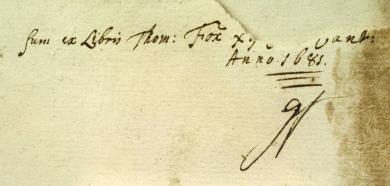 Sum ex Libris Thom: Fox
Anno 1681.